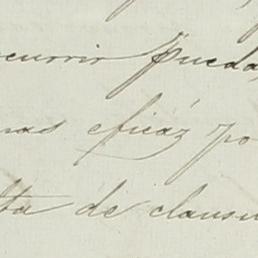 ocurrir pueda
mas eficáz po
lta de clausu